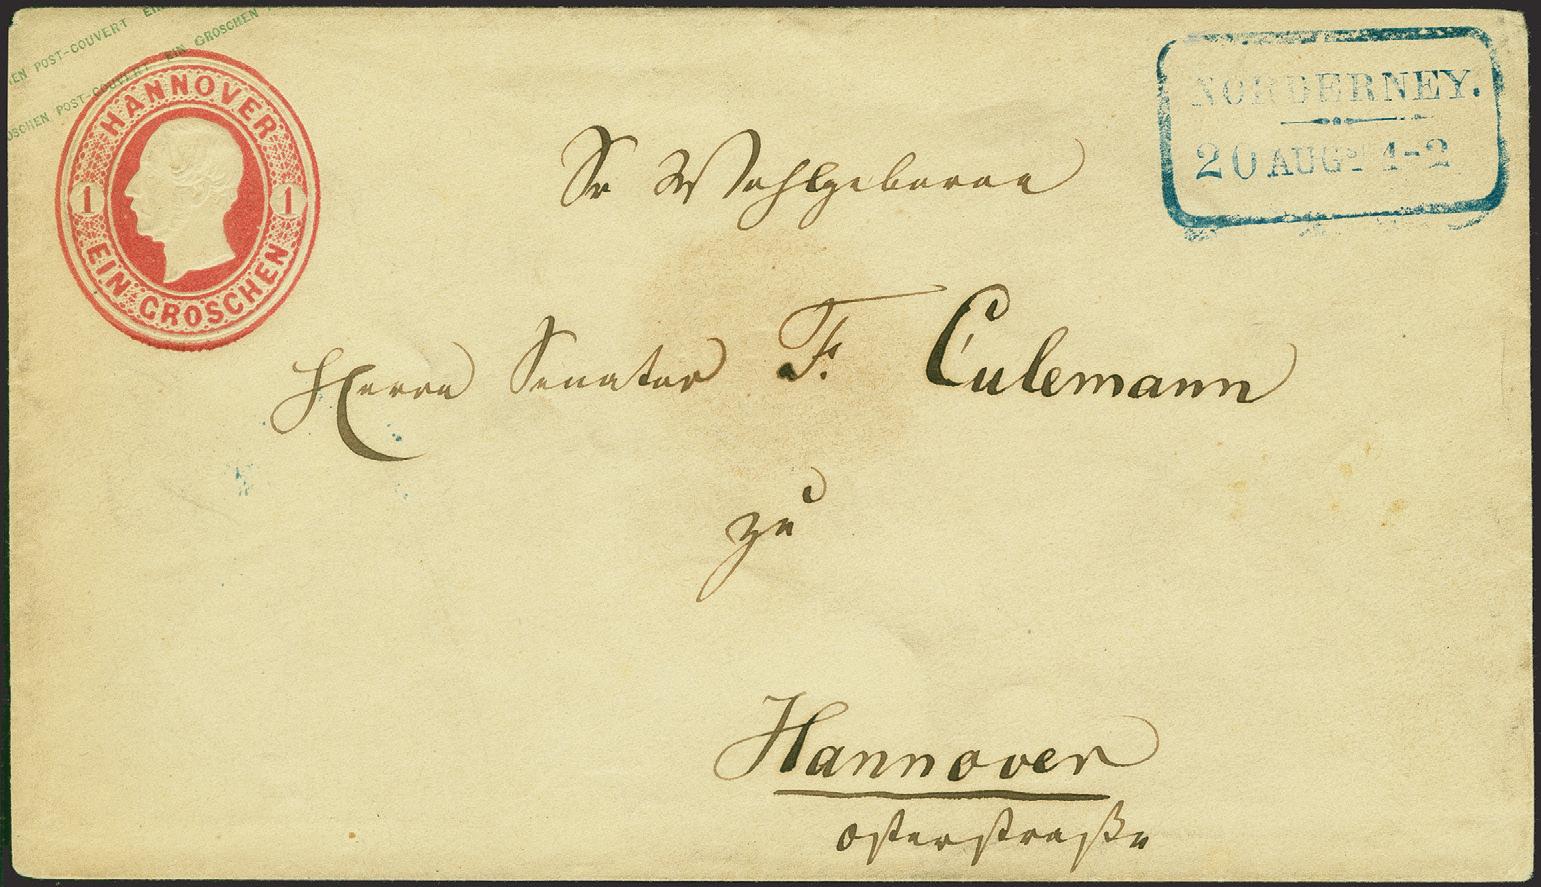 EN POST-COUVERT EIN
OSCHEN POST-COUVERT EIN GROSCHEN
HANNOVER
1 1
EIN GROSCHEN
NORDERNEY.
20 AUGT 1-2
Sr Wohlgeboren
Herrn Senator F. Culemann
zu
Hannover
Osterstraße